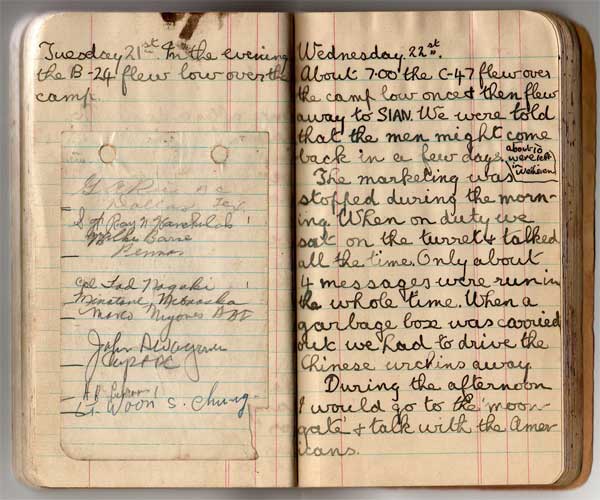 Tuesday 21st. In the evening
the B-24 flew low over the
camp.
Dallas Tex
Sgt Ray N.
Wilkes Barre
Penna
Cpl Tad Nagaki
Minatare, Nebraska
John
Lt. Woon S. Chung.
Wednesday 22st.
About 7.00 the C-47 flew over
the camp low once & then flew
away to SIAN. We were told
that the men might come
back in a few days.
about 10
were left
in Weihsien
The marketing was
stopped during the morn-
ing. When on duty we
sat on the turret & talked
all the time. Only about
4 messages were run in
the whole time. When a
garbage box was carried
out we had to drive the
Chinese urchins away.
During the afternoon
I would go to the 'moon-
gate' & talk with the Amer-
icans.